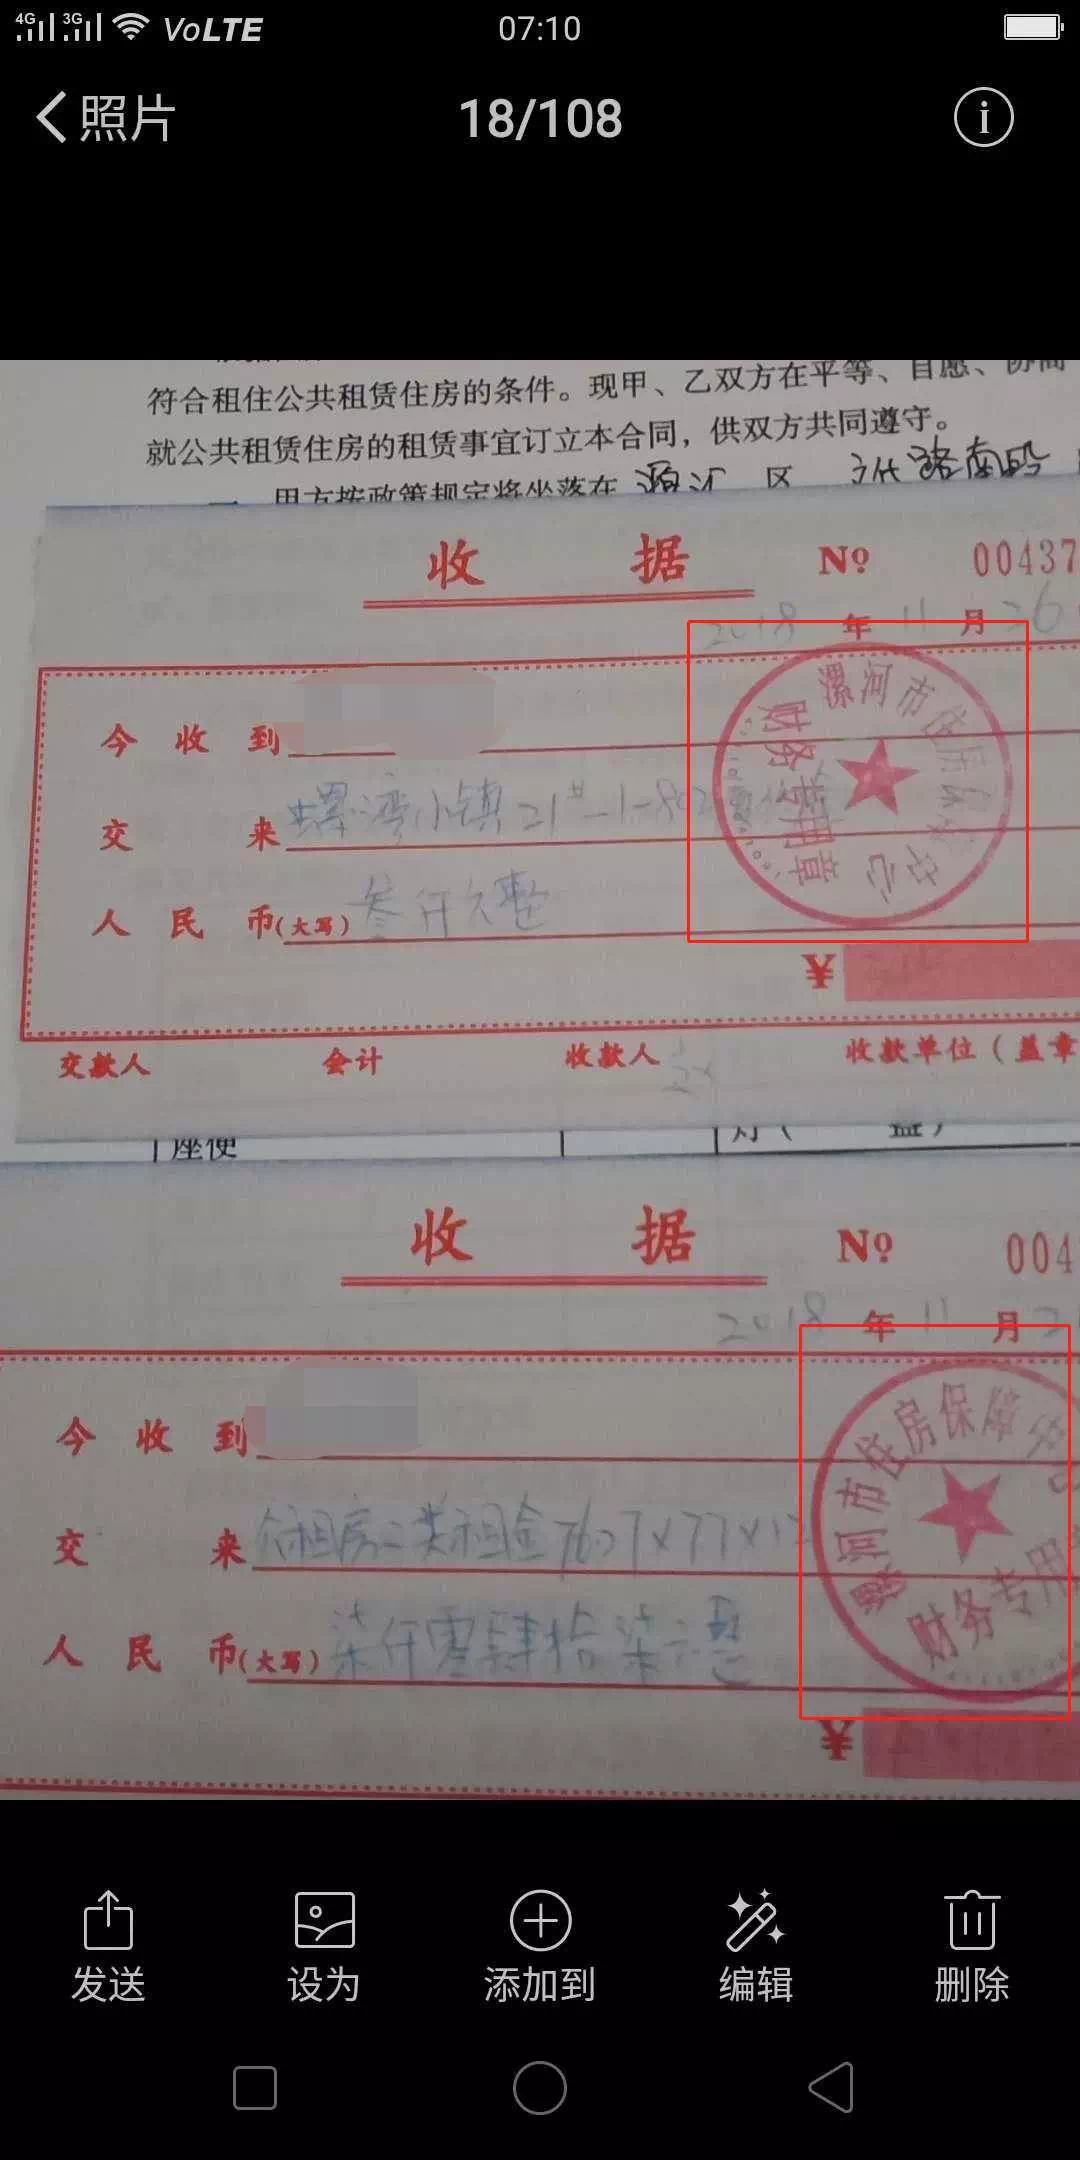 4G 3G VoLTE 07:10
照片 18/108
符合租住公共租赁住房的条件。现甲、乙双方在平等、自愿、协商
就公共租赁住房的租赁事宜订立本合同，供双方共同遵守。
一、甲方按政策规定将坐落在 源汇 区
收 据 Nº 00437
2018 年 11 月 26
今收到
交来 螺湾小镇21#-1-802
人民币(大写) 叁仟元整
¥
交款人 会计 收款人 收款单位(盖章
漯河市住房保障中心
财务专用章
座便 灯( 盏)
收 据 Nº 004
2018 年 11 月 2
今收到
交来 公租房二类租金7627×77×12
人民币(大写) 柒仟零肆拾柒元整
¥
漯河市住房保障中
财务专用
发送 设为 添加到 编辑 删除